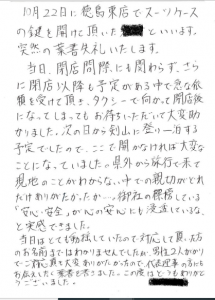 10月22日に徳島東店でスーツケース
の鍵を開けて頂いた といいます。
突然の葉書失礼いたします。
当日、閉店間際にも関わらず、さら
に閉店以降も予定がある中で急な依
頼を受けて頂き、タクシーで向かって閉店後
になってしまってもお待ちいただいて大変助
かりました。次の日から剣山に登り一泊する
予定でしたので、ここで開かなければ大変な
ことになっていました。県外から旅行で来て
現地のことがわからない中での親切がどれ
だけありがたかったか…。御社の標榜している
「安心・安全」が心の安心にも浸透しているな、
と実感できました。
当日はとても動揺していたので対応して頂いた方
のお名前まではわかりませんでしたが、男性2人がかり
でご対応頂き大変ありがたかったので、代表理事の方にも
お伝えしたく葉書を書きました。この度はとてもありがとう
ございました。